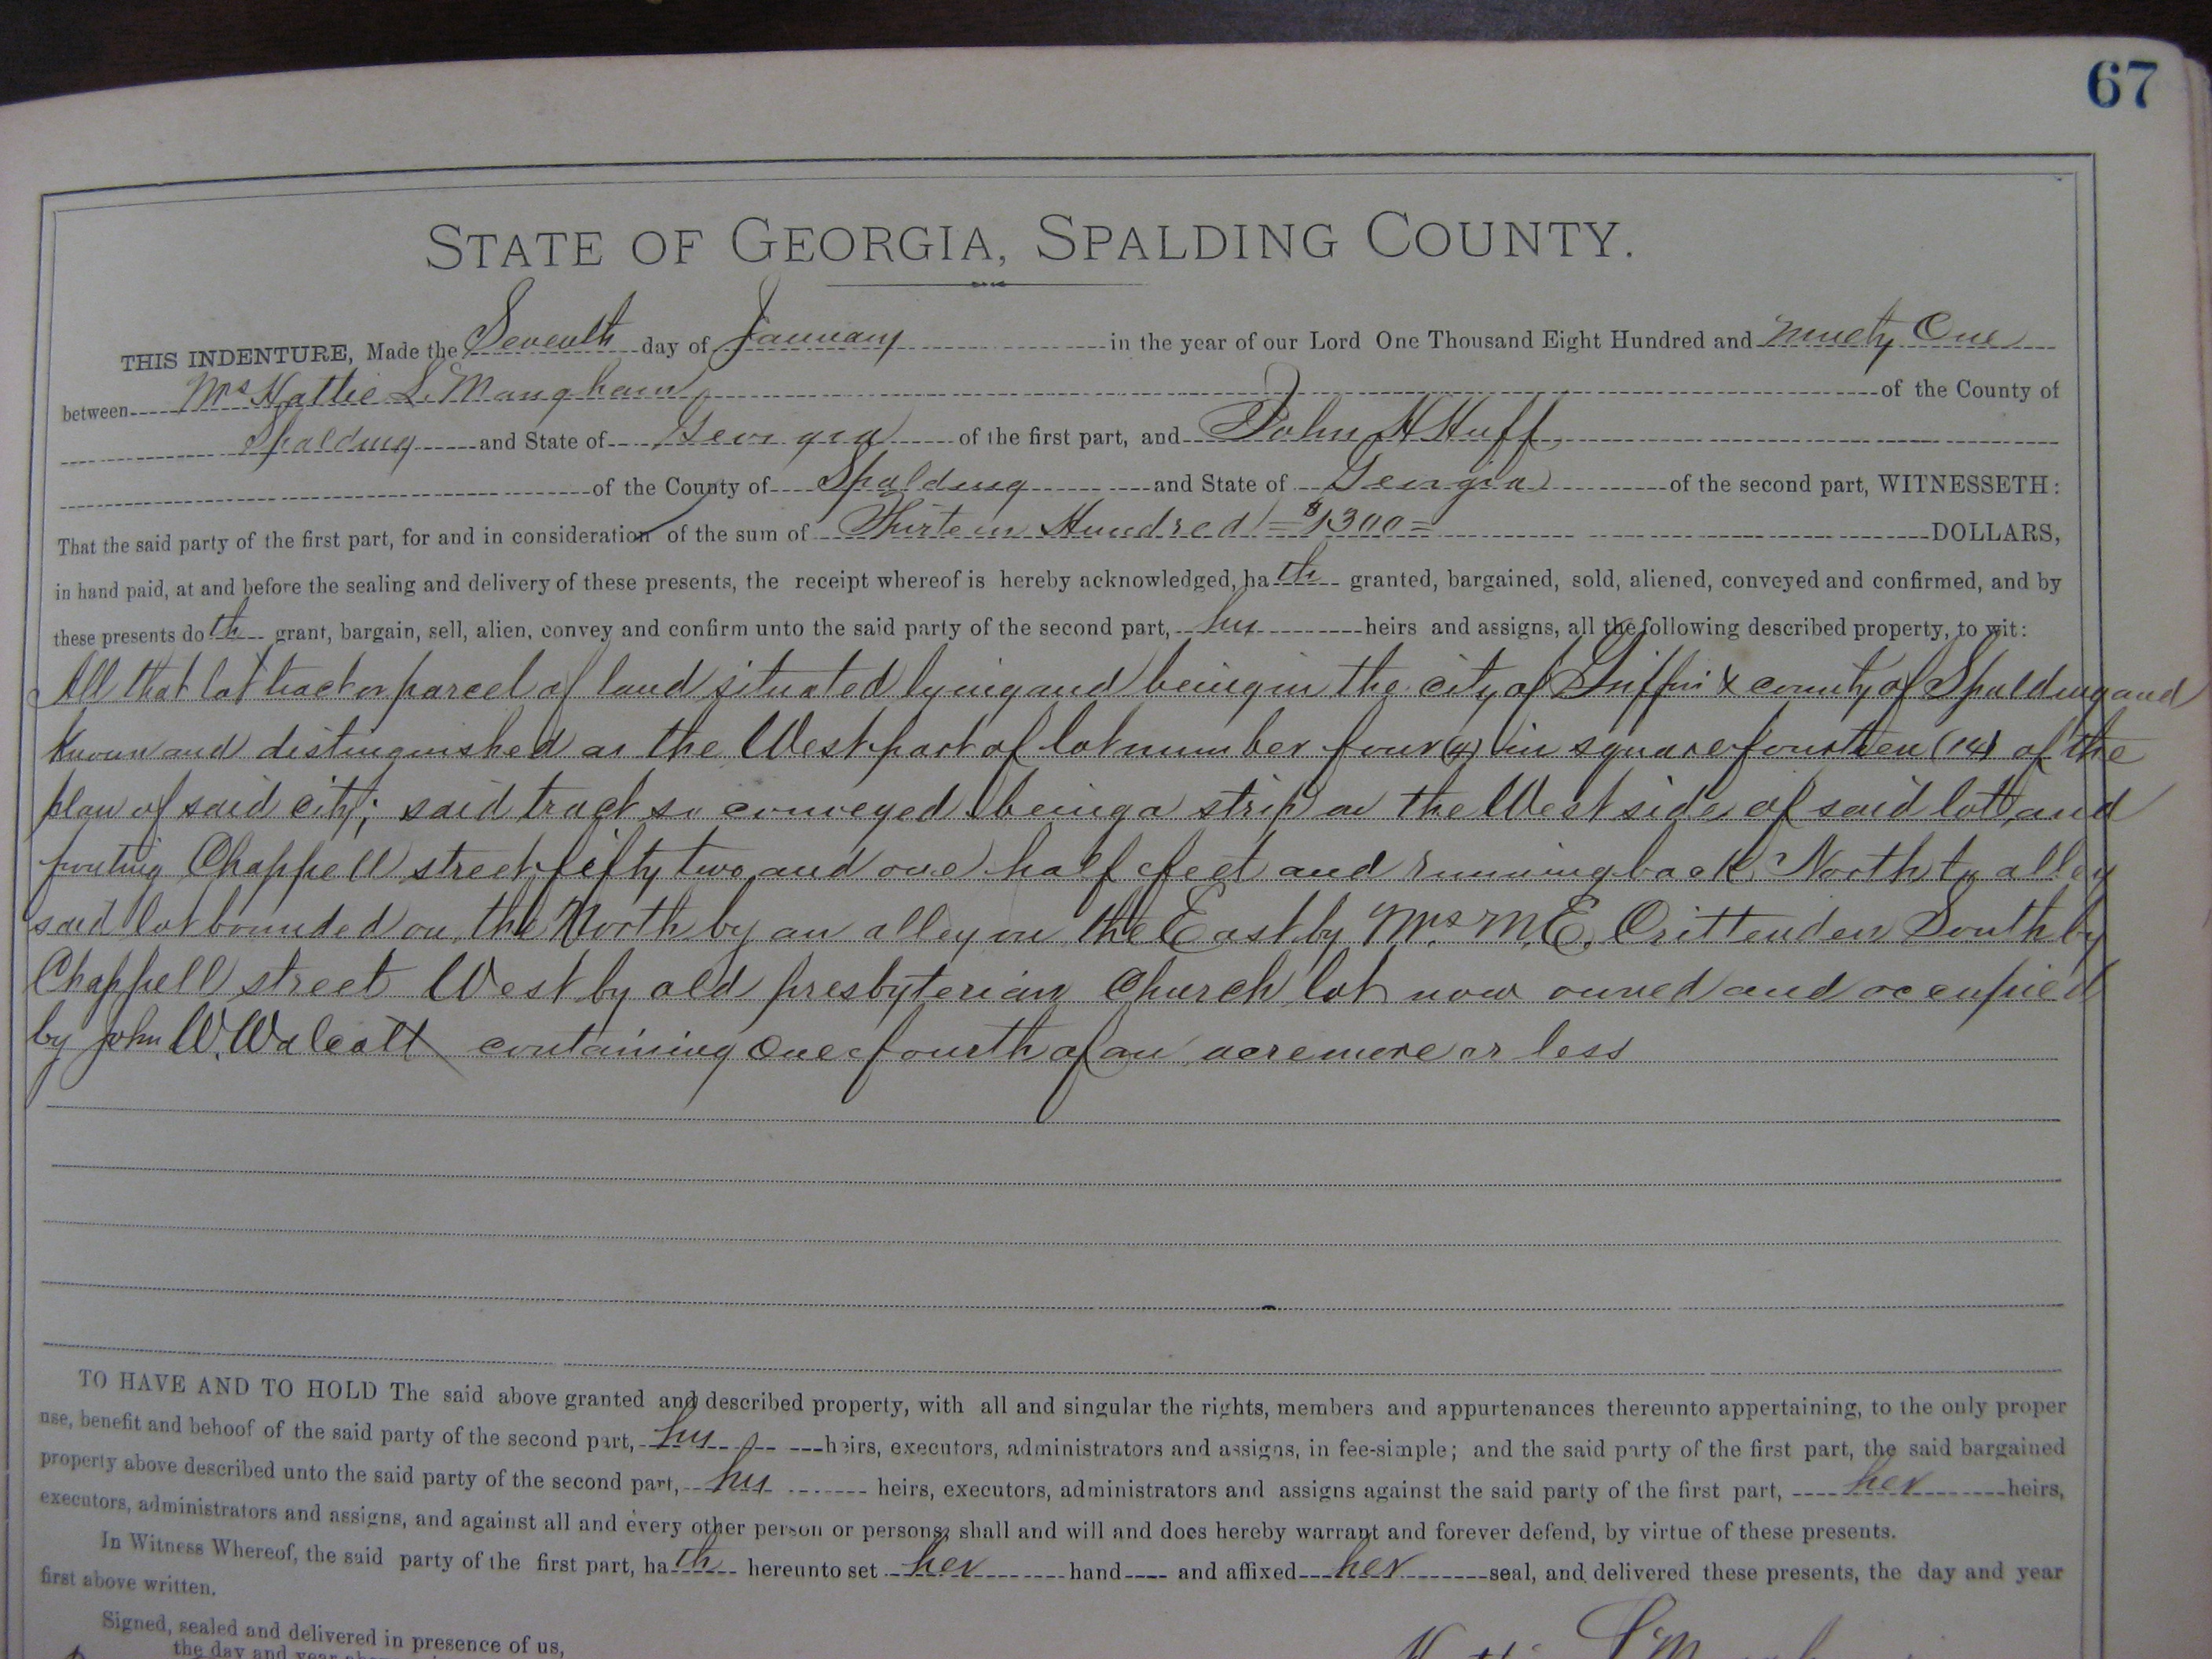 67
STATE OF GEORGIA, SPALDING COUNTY.
THIS INDENTURE, Made the Seventh day of January in the year of our Lord One Thousand Eight Hundred and Ninety One
between Mrs Hattie L. Mangham of the County of
Spalding and State of Georgia of the first part, and John H Huff
of the County of Spalding and State of Georgia of the second part, WITNESSETH:
That the said party of the first part, for and in consideration of the sum of Thirteen Hundred =$1300= DOLLARS,
in hand paid, at and before the sealing and delivery of these presents, the receipt whereof is hereby acknowledged, hath granted, bargained, sold, aliened, conveyed and confirmed, and by
these presents doth grant, bargain, sell, alien, convey and confirm unto the said party of the second part, his heirs and assigns, all the following described property, to wit:
All that lot tract or parcel of land situated lying and being in the city of Griffin & county of Spalding and
known and distinguished as the West part of lot number four (4) in square fourteen (14) of the
plan of said city; said tract so conveyed being a strip on the West side of said lott, and
fronting Chappell street fifty two and one half feet and running back North to alley
said lot bounded on the North by an alley on the East by Mrs M.E. Crittenden South by
Chappell street West by old presbyterian Church lot now owned and occupied
by John W. Walcott containing One fourth of an acre more or less
TO HAVE AND TO HOLD The said above granted and described property, with all and singular the rights, members and appurtenances thereunto appertaining, to the only proper
use, benefit and behoof of the said party of the second part, his heirs, executors, administrators and assigns, in fee-simple; and the said party of the first part, the said bargained
property above described unto the said party of the second part, his heirs, executors, administrators and assigns against the said party of the first part, her heirs,
executors, administrators and assigns, and against all and every other person or persons, shall and will and does hereby warrant and forever defend, by virtue of these presents.
In Witness Whereof, the said party of the first part, hath hereunto set her hand and affixed her seal, and delivered these presents, the day and year
first above written.
Signed, sealed and delivered in presence of us,
the day and year